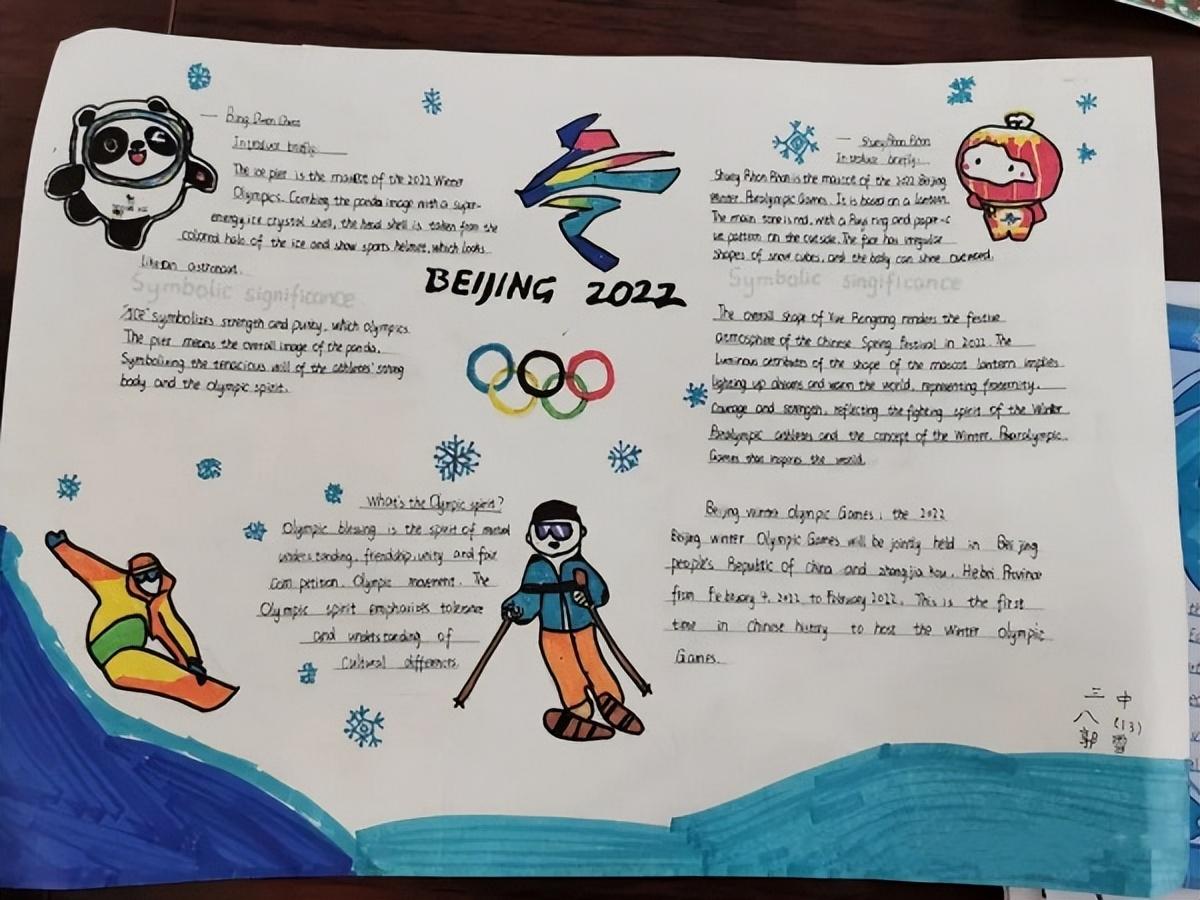 — Bing Dwen Dwen
Introduce briefly.
The ice pier is the mascot of the 2022 Winter
Olympics. Combing the panda image with a super-
energy ice crystal shell, the head shell is taken from the
colored halo of the ice and snow sports helmet, which looks
like an astronaut.
Symbolic significance
"ICE" symbolizes strength and purity, which Olympics.
The pier means the overall image of the panda.
Symbolizing the tenacious will of the athletes' strong
body and the Olympic spirit.
BEIJING 2022
— Shuey Rhon Rhon
Introduce briefly.
Shuey Rhon Rhon is the mascot of the 2022 Beijing
Winter Paralympic Games. It is based on a lantern.
The main tone is red, with a Ruyi ring and paper-c
ut pattern on the outside. The face has irregular
shapes of snow cubes, and the body can shoe
Symbolic singificance
The overall shape of Xue Rongrong renders the festive
atmosphere of the Chinese Spring Festival in 2022. The
luminous attributes of the shape of the mascot lantern implies
lighting up dreams and warm the world, representing fraternity.
Courage and strength, reflecting the fighting spirit of the Winter
Paralympic athletes and the concept of the Winter. Paralympic
Games that inspires the world.
What's the Olympic spirit?
Olympic blessing is the spirit of mutual
understanding, friendship, unity and fair
competition. Olympic movement. The
Olympic spirit emphasizes tolerance
and understanding of
cultural differences.
Beijing winter Olympic Games, the 2022
Beijing winter Olympic Games will be jointly held in Bei jing
people's Republic of China and zhangjia kou, Hebei Province
from February 4, 2022 to February 2022. This is the first
time in Chinese history to host the Winter Olympic
Games.
三中
八(13)
郭雪